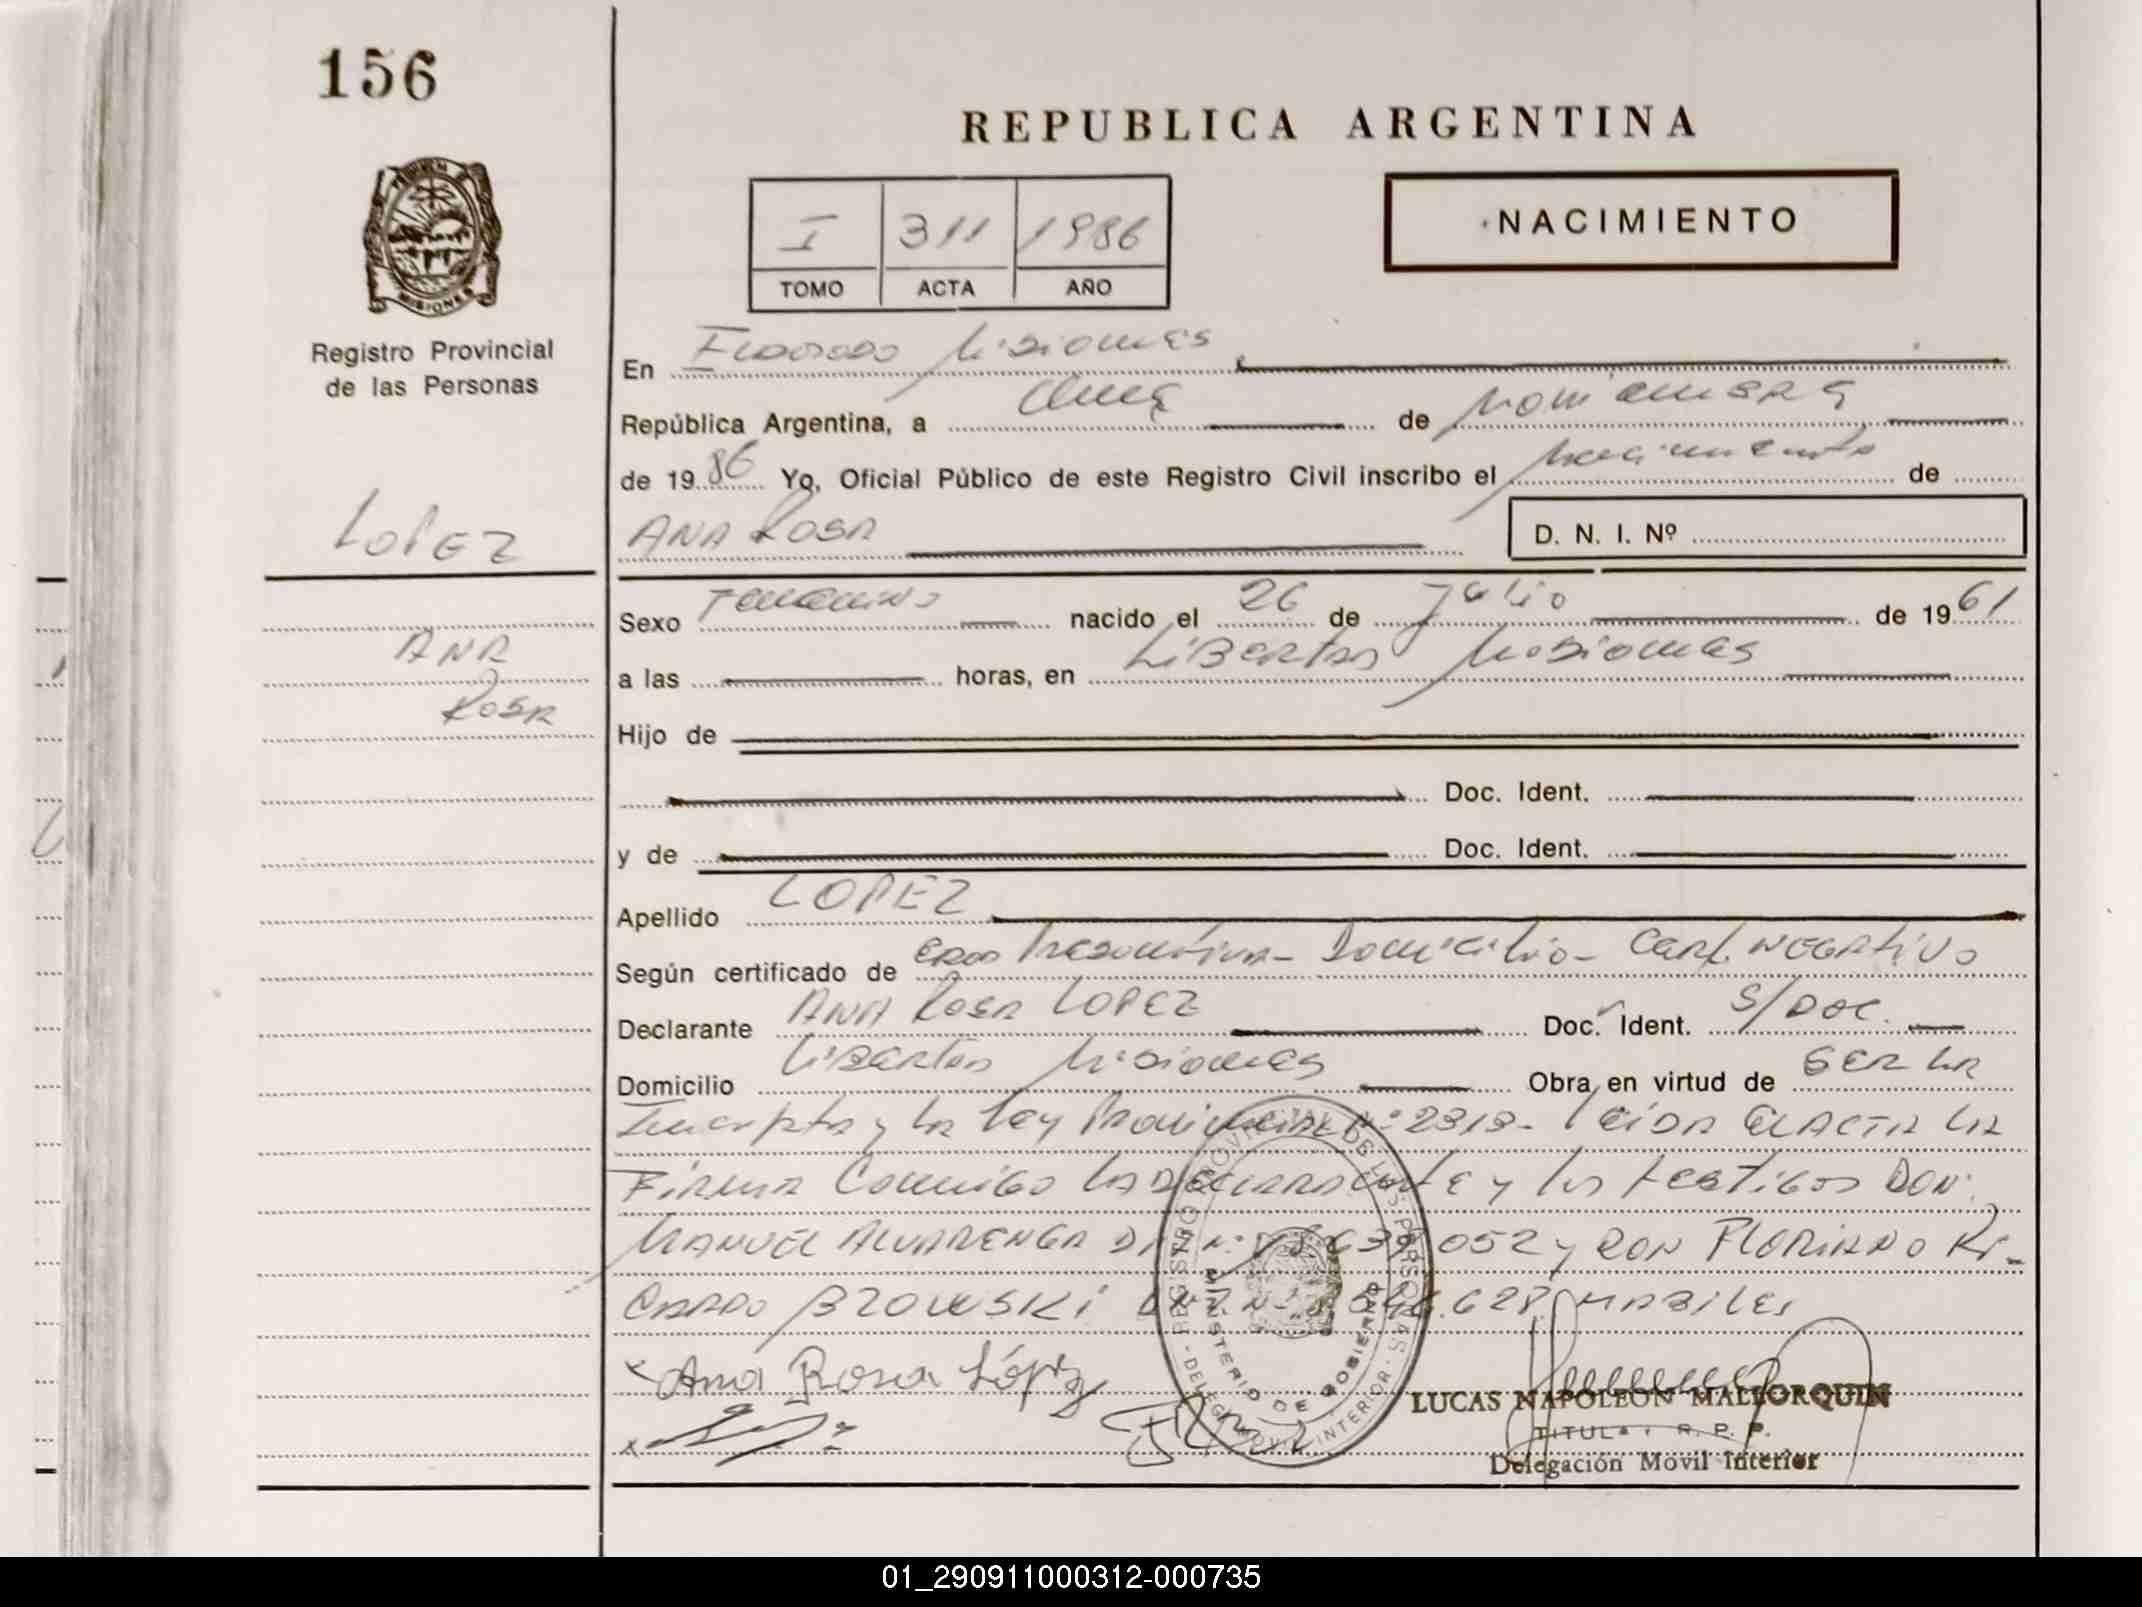 156
REPUBLICA ARGENTINA
NACIMIENTO
I 311 1986
TOMO ACTA AÑO
MISIONES
Registro Provincial
de las Personas
En Eldorado Misiones
República Argentina, a once de noviembre
de 1986 Yo, Oficial Público de este Registro Civil inscribo el nacimiento de
LOPEZ
ANA ROSA
D. N. I. Nº
Sexo Femenino nacido el 26 de Julio de 1961
ANA
ROSA
a las horas, en Libertad Misiones
Hijo de
Doc. Ident.
y de Doc. Ident.
Apellido LOPEZ
Según certificado de Edad Presuntiva - Domicilio - Cert. NEGATIVO
Declarante ANA ROSA LOPEZ Doc. Ident. S/DOC.
Domicilio Libertad Misiones Obra en virtud de SER LA
Inscripta y la Ley Provincial Nº 2313 - LEIDA EL ACTA LA
FIRMA Conmigo LA DECLARANTE y los testigos DON
MANUEL ALVARENGA 052 y DON FLORIANO RI-
CARDO BZOWSKI 628 HABILES
REGISTRO PROVINCIAL DE LAS PERSONAS
MINISTERIO DE GOBIERNO
DELEG. MOVIL INTERIOR
Ana Rosa López
LUCAS NAPOLEON MALLORQUIN
TITULAR R. P. P.
Delegación Movil Interior
01_290911000312-000735